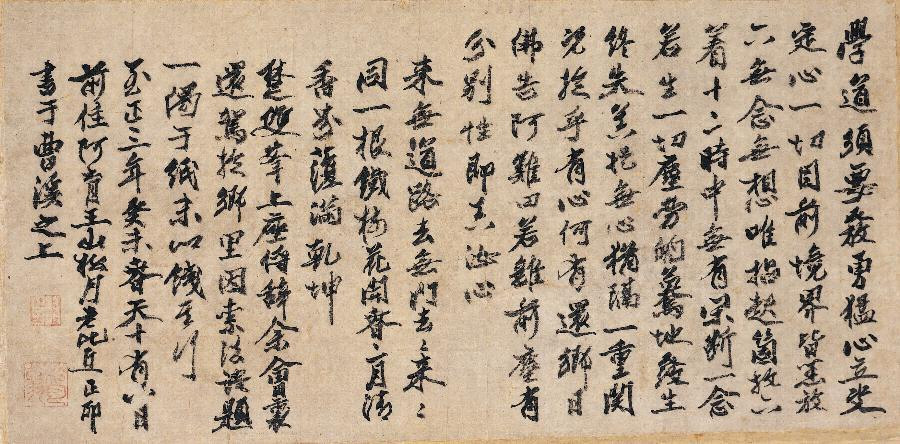 學道須要發勇猛心立堅
定心一切目前境界皆盡放
下無念無想唯招起箇放下
着十二時中無有間斷一念
若生一切塵勞的驀地發生
終失其把無心猶隔一重関
況於乎有心何有還鄉日
佛告阿難曰若離前塵有
分別性即真汝心
来無道路去無門去〻来〻
同一根鐵樹花開春二月清
香苾蒞滿乾坤
楚進華上座侍辞余會裏
還駕於鄉里因索法語題
一偈于紙末以餞其行
至正三年癸未春天十有八日
前住阿育王山松月老比丘正印
書于曹溪之上